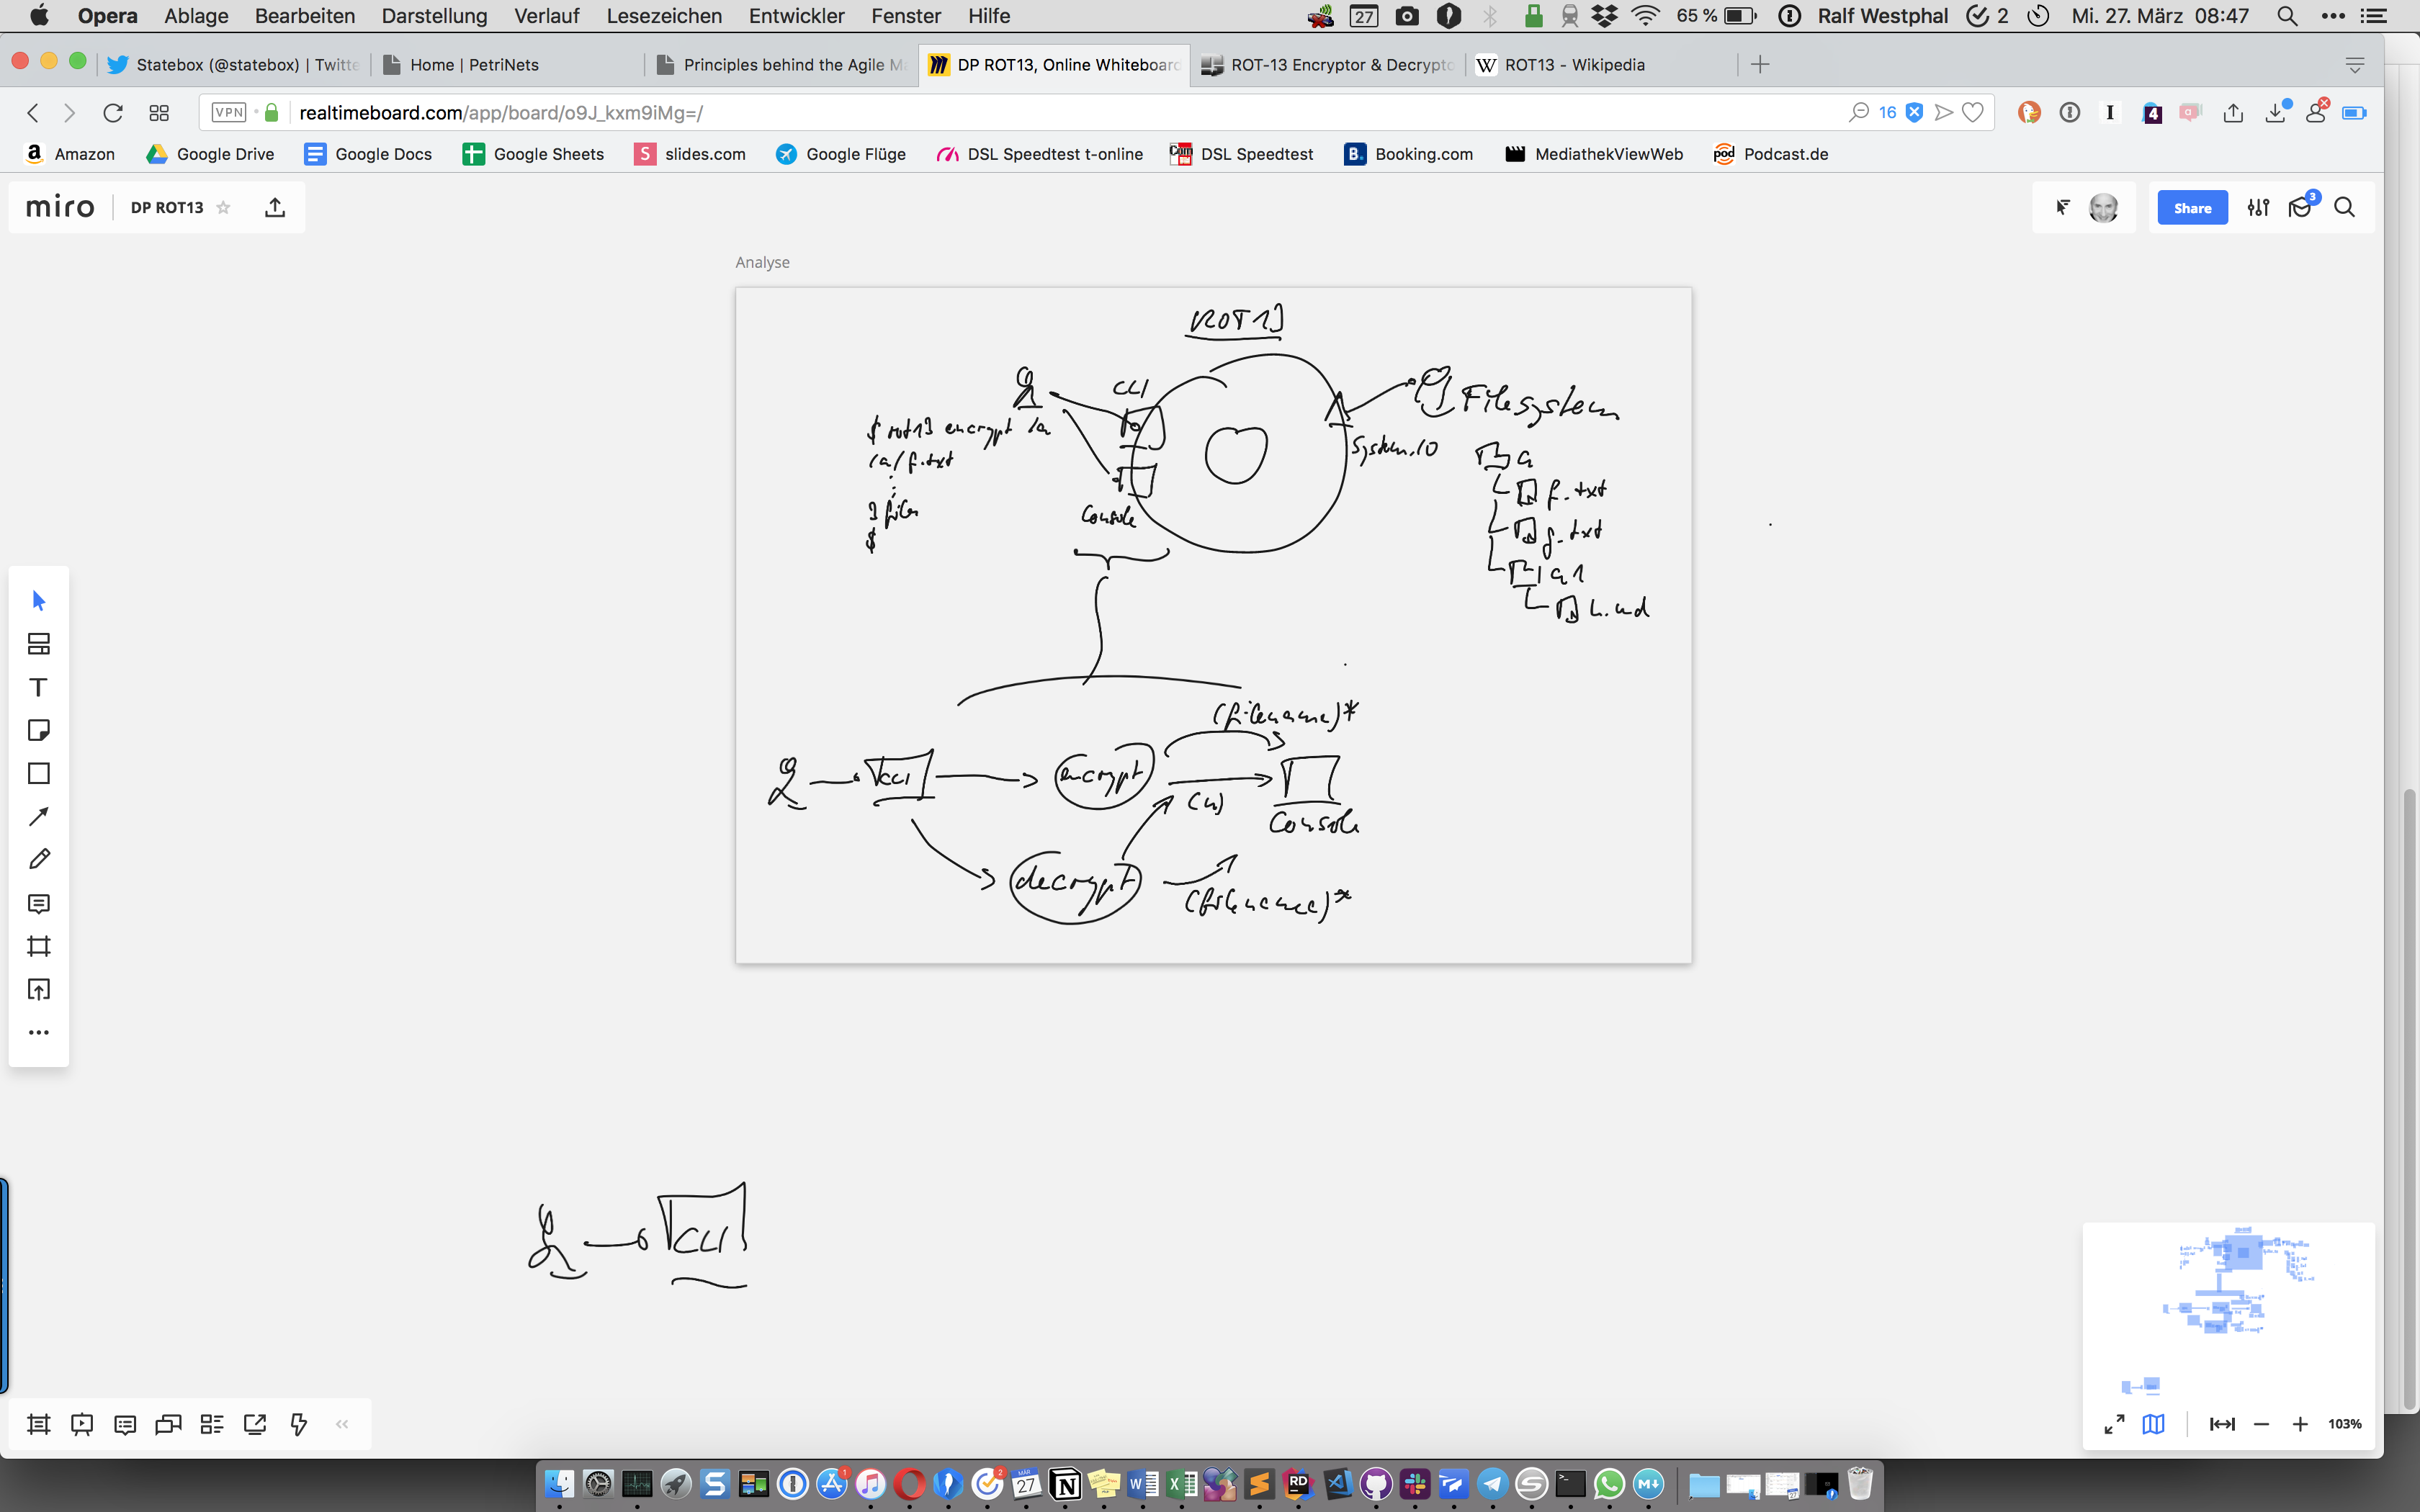 Opera Ablage Bearbeiten Darstellung Verlauf Lesezeichen Entwickler Fenster Hilfe 27 65 % Ralf Westphal 2 Mi. 27. März 08:47
Statebox (@statebox) | Twitte Home | PetriNets Principles behind the Agile Ma DP ROT13, Online Whiteboard ROT-13 Encryptor & Decrypto W ROT13 - Wikipedia
VPN realtimeboard.com/app/board/o9J_kxm9iMg=/ 16 4
a Amazon Google Drive Google Docs Google Sheets S slides.com Google Flüge DSL Speedtest t-online Com DSL Speedtest B. Booking.com MediathekViewWeb pod Podcast.de
miro DP ROT13 Share 3
Analyse
ROT13
CLI
Filesystem
$ rot13 encrypt /a
/a/f.txt
System.IO
a
f.txt
3 files
Console
g.txt
$
a1
h.md
(filename)*
CLI encrypt
(n)
Console
decrypt
(filename)*
CLI
103%
1 2 MÄR 27 N W X RD M